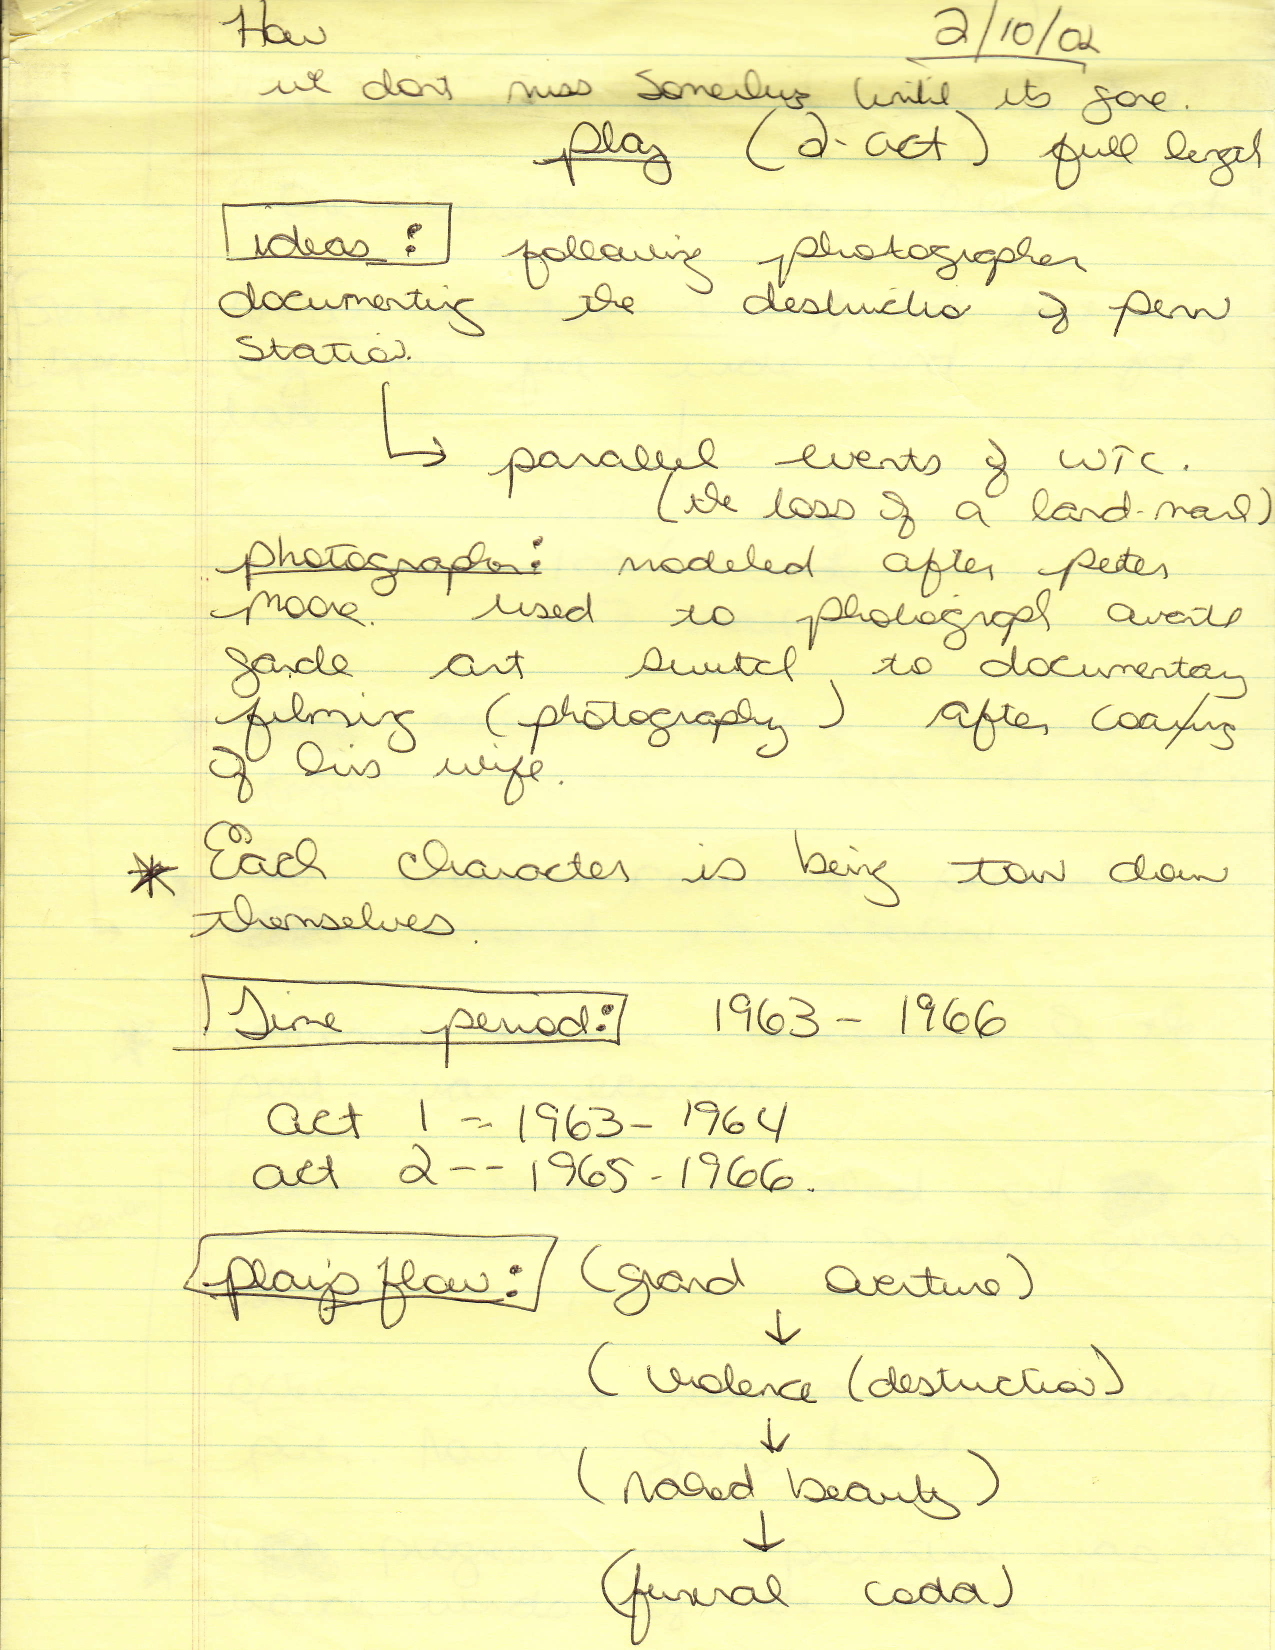 How 2/10/02
we don't miss something until its gone.
play (2-act) full length
ideas: following photographer
documenting the destruction of penn
Station.
parallel events of WTC.
(the loss of a land-mark)
photographer: modeled after peter
moore. used to photograph avante
garde art switch to documentary
filming (photography) after coaxing
of his wife.
* Each character is being torn down
themselves.
Time period: 1963 - 1966
act 1 -- 1963 - 1964
act 2 -- 1965 - 1966.
play's flow: (grand overture)
↓
(violence (destruction)
↓
(naked beauty)
↓
(funeral coda)